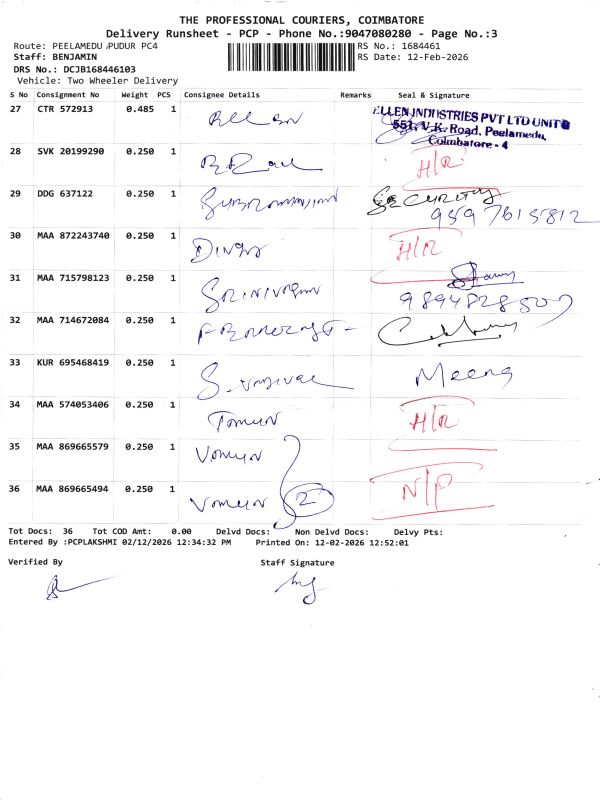 THE PROFESSIONAL COURIERS, COIMBATORE
Delivery Runsheet - PCP - Phone No.:9047080280 - Page No.:3
Route: PEELAMEDU PUDUR PC4
RS No.: 1684461
Staff: BENJAMIN
RS Date: 12-Feb-2026
DRS No.: DCJB168446103
Vehicle: Two Wheeler Delivery
S No Consignment No Weight PCS Consignee Details Remarks Seal & Signature
27 CTR 572913 0.485 1
ELLEN INDUSTRIES PVT LTD UNIT
551, V.K. Road, Peelamedu,
Coimbatore - 4
28 SVK 20199290 0.250 1 H/R
29 DDG 637122 0.250 1 Security
9597615812
30 MAA 872243740 0.250 1 H/R
31 MAA 715798123 0.250 1 Srinivasan
9894828507
32 MAA 714672084 0.250 1
33 KUR 695468419 0.250 1 Meena
34 MAA 574053406 0.250 1 H/R
35 MAA 869665579 0.250 1
36 MAA 869665494 0.250 1 2 N/P
Tot Docs: 36 Tot COD Amt: 0.00 Delvd Docs: Non Delvd Docs: Delvy Pts:
Entered By :PCPLAKSHMI 02/12/2026 12:34:32 PM Printed On: 12-02-2026 12:52:01
Verified By Staff Signature